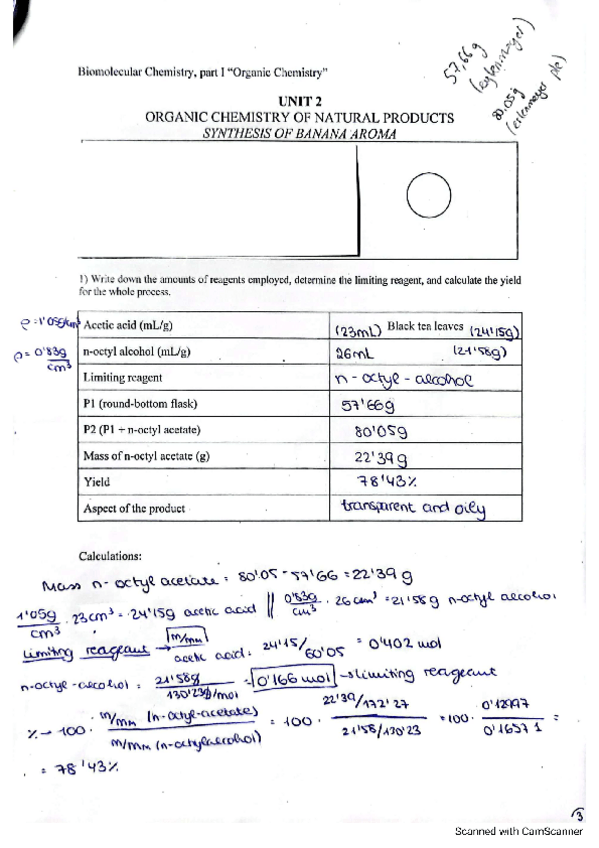 57,66g
(erlenmeyer)
80.05g
(erlenmeyer ple)
Biomolecular Chemistry, part I "Organic Chemistry"
UNIT 2
ORGANIC CHEMISTRY OF NATURAL PRODUCTS
SYNTHESIS OF BANANA AROMA
1) Write down the amounts of reagents employed, determine the limiting reagent, and calculate the yield
for the whole process.
ρ=1'05g/cm³ Acetic acid (mL/g) (23mL) Black tea leaves (24'15g)
ρ= 0'83g/cm³ n-octyl alcohol (mL/g) 26mL (21'58g)
Limiting reagent n-octyl-alcohol
P1 (round-bottom flask) 57'66g
P2 (P1 + n-octyl acetate) 80'05g
Mass of n-octyl acetate (g) 22'39g
Yield 78'43%
Aspect of the product transparent and oily
Calculations:
Mass n-octyl acetate = 80'05-57'66=22'39 g
1'05g/cm³ · 23cm³ = 24'15g acetic acid || 0'83g/cm³ · 26cm³ =21'58g n-octyl alcohol
Limiting reageant → m/mm acetic acid: 24'15/60'05 = 0'402 mol
n-octyl-alcohol = 21'58g/130'23g/mol = 0'166 mol → limiting reageant
% → 100 · m/mm (n-octyl-acetate)/m/mm (n-octylalcohol) = 100 · 22'39/172'27/21'58/130'23 =100· 0'12997/0'16571 =
= 78'43%
3
Scanned with CamScanner